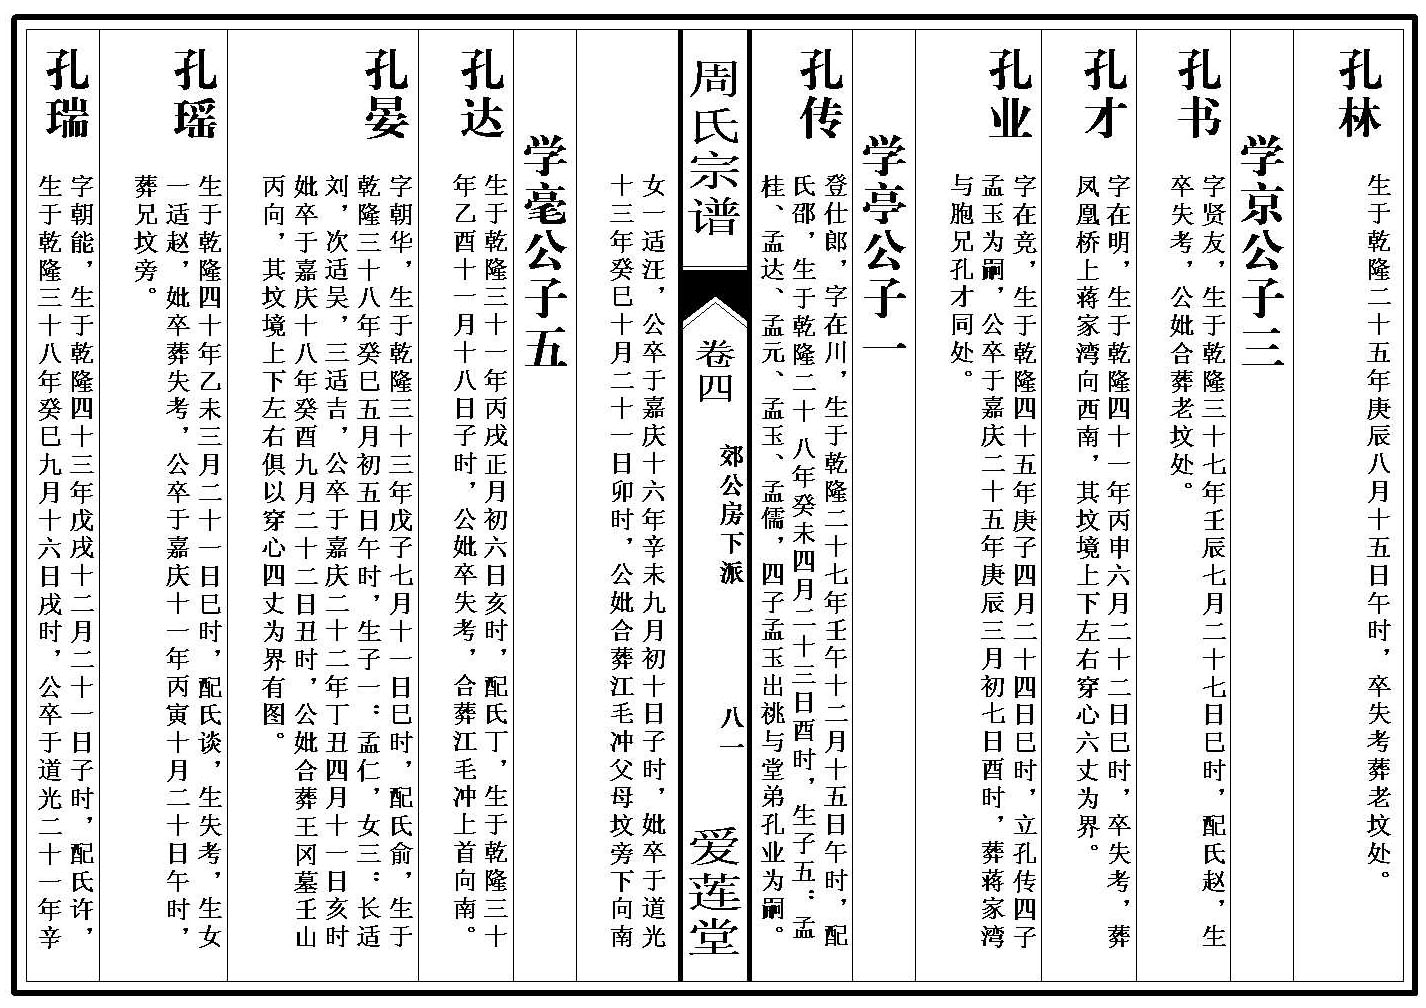 孔林
生于乾隆二十五年庚辰八月十五日午时，卒失考葬老坟处。
学京公子三
孔书
字贤友，生于乾隆三十七年壬辰七月二十七日巳时，配氏赵，生
卒失考，公妣合葬老坟处。
孔才
字在明，生于乾隆四十一年丙申六月二十二日巳时，卒失考，葬
凤凰桥上蒋家湾向西南，其坟境上下左右穿心六丈为界。
孔业
字在竞，生于乾隆四十五年庚子四月二十四日巳时，立孔传四子
孟玉为嗣，公卒于嘉庆二十五年庚辰三月初七日酉时，葬蒋家湾
与胞兄孔才同处。
学亭公子一
孔传
登仕郎，字在川，生于乾隆二十七年壬午十二月十五日午时，配
氏邵，生于乾隆二十八年癸未四月二十三日酉时，生子五：孟
桂、孟达、孟元、孟玉、孟儒，四子孟玉出祧与堂弟孔业为嗣。
周氏宗谱
卷四
郊公房下派
八一
爱莲堂
女一适汪，公卒于嘉庆十六年辛未九月初十日子时，妣卒于道光
十三年癸巳十月二十一日卯时，公妣合葬江毛冲父母坟旁下向南
学毫公子五
孔达
生于乾隆三十一年丙戌正月初六日亥时，配氏丁，生于乾隆三十
年乙酉十一月十八日子时，公妣卒失考，合葬江毛冲上首向南。
孔晏
字朝华，生于乾隆三十三年戊子七月十一日巳时，配氏俞，生于
乾隆三十八年癸巳五月初五日午时，生子一：孟仁，女三：长适
刘，次适吴，三适吉，公卒于嘉庆二十二年丁丑四月十一日亥时
妣卒于嘉庆十八年癸酉九月二十二日丑时，公妣合葬王冈墓壬山
丙向，其坟境上下左右俱以穿心四丈为界有图。
孔瑶
生于乾隆四十年乙未三月二十一日巳时，配氏谈，生失考，生女
一适赵，妣卒葬失考，公卒于嘉庆十一年丙寅十月二十日午时，
葬兄坟旁。
孔瑞
字朝能，生于乾隆四十三年戊戌十二月二十一日子时，配氏许，
生于乾隆三十八年癸巳九月十六日戌时，公卒于道光二十一年辛